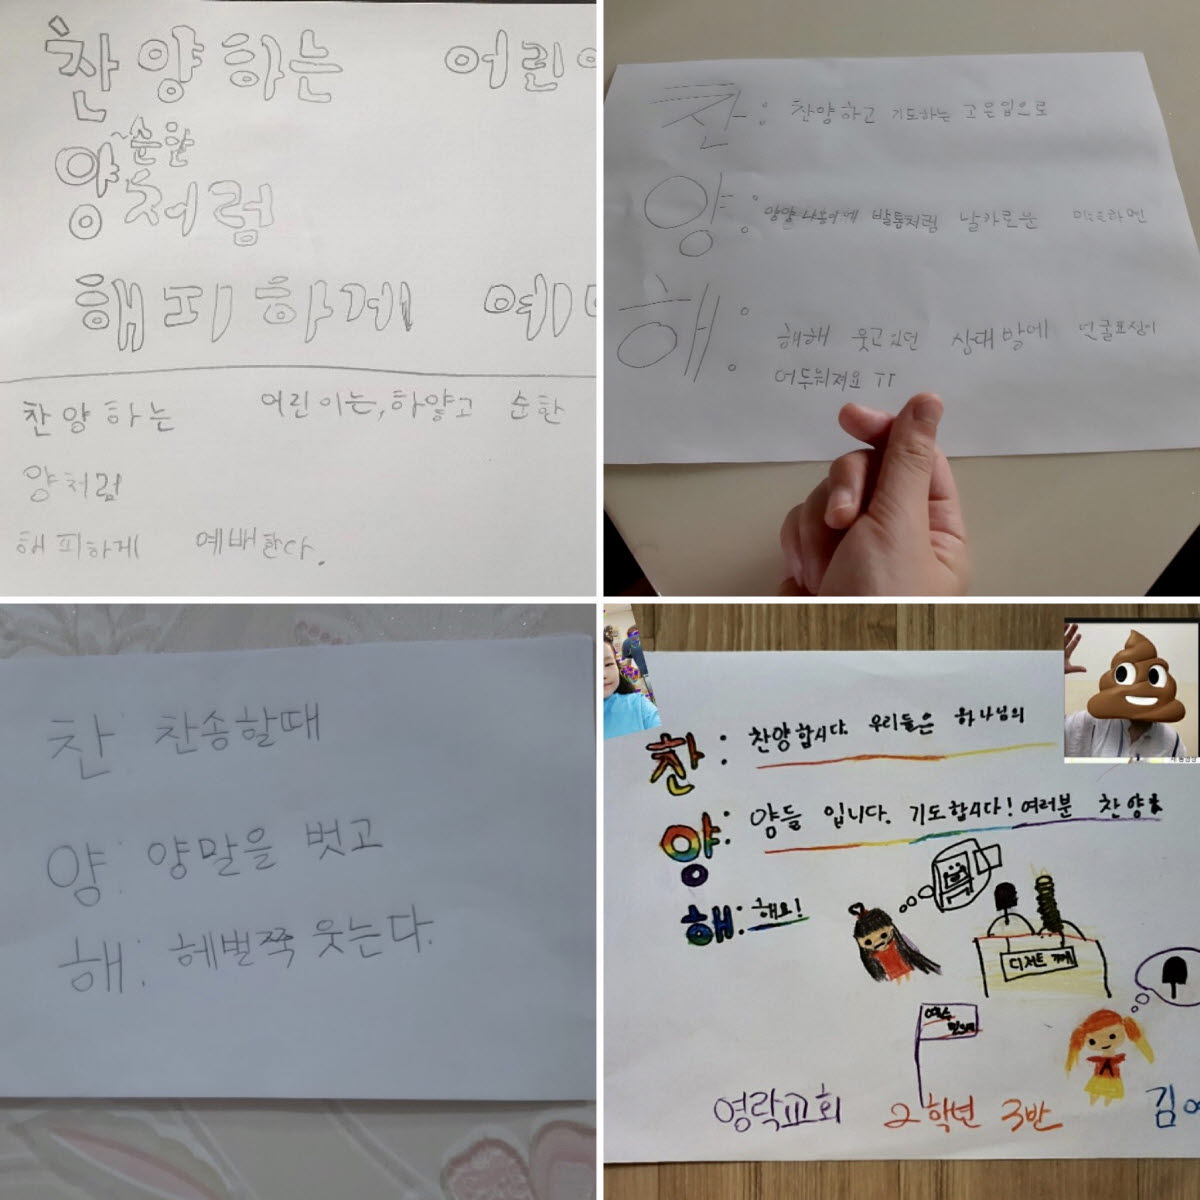 찬양하는 어린
순한
양처럼
해피하게 예
찬양하는 어린이는, 하얗고 순한
양처럼
해피하게 예배한다.
찬: 찬양하고 기도하는 고은입으로
양: 발톱처럼 날카로운
해: 해해 웃고있던 상대방에 얼굴표정이
어두워져요 ㅠ
찬: 찬송할때
양: 양말을 벗고
해: 헤벌쭉 웃는다.
찬: 찬양합시다. 우리들은 하나님의
양: 양들 입니다. 기도합시다! 여러분 찬양
해: 해요!
디저트 가게
예수
영락교회 2학년 3반 김